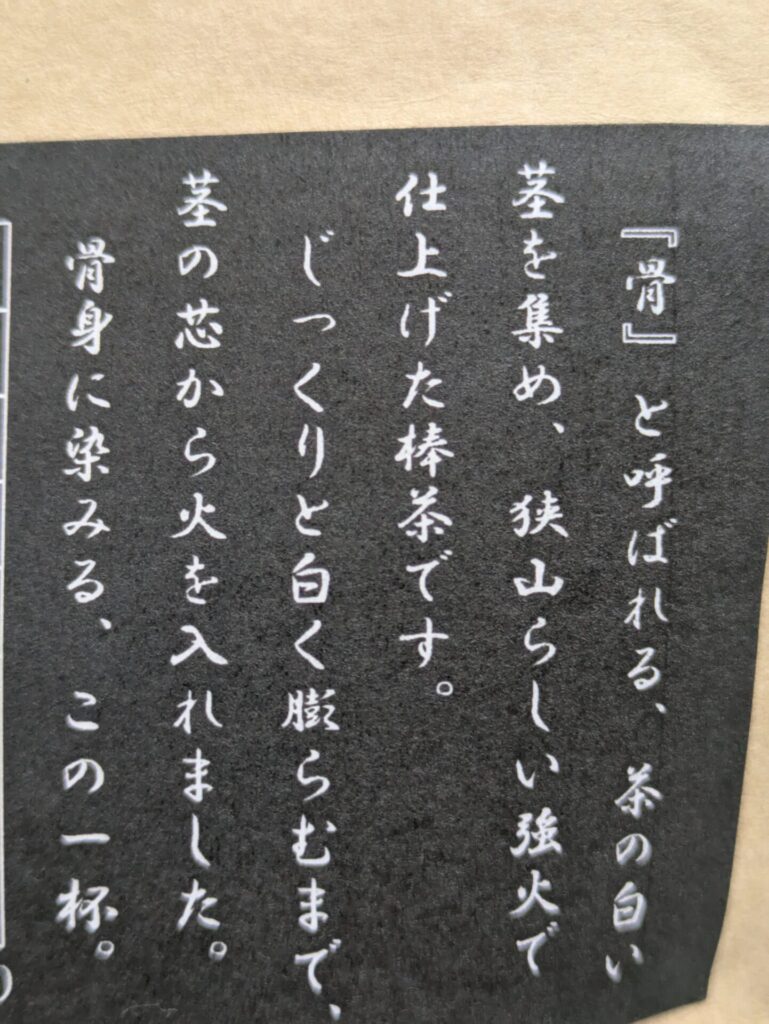 『骨』と呼ばれる、茶の白い
茎を集め、狭山らしい強火で
仕上げた棒茶です。
じっくりと白く膨らむまで、
茎の芯から火を入れました。
骨身に染みる、この一杯。